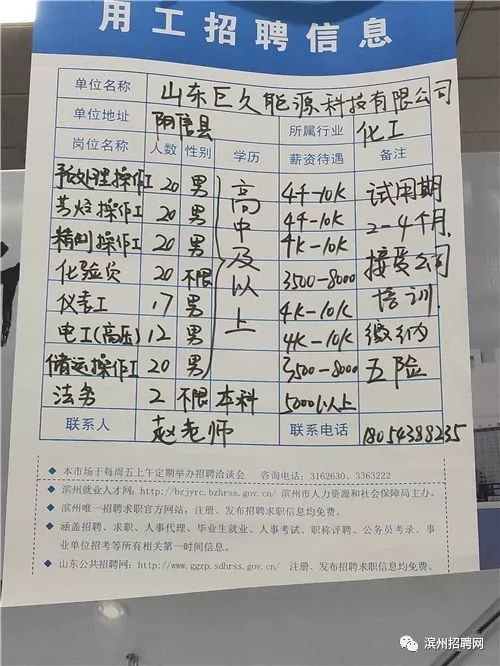 用工招聘信息
单位名称 山东巨久能源科技有限公司
单位地址 阳信县 所属行业 化工
岗位名称 人数 性别 学历 薪资待遇 备注
预处理操作工 20 男 高中及以上 4千-10K 试用期
芳烃操作工 20 男 4千-10K 2-4个月,
精制操作工 20 男 4K-10K 接受公司
化验员 20 不限 3500-8000 培训,
仪表工 17 男 4K-10K 缴纳
电工(高压) 12 男 4K-10K 五险
储运操作工 20 男 3500-8000
法务 2 不限 本科 5000以上
联系人 赵老师 联系电话 18054388235
◆ 本市场于每周五上午定期举办招聘洽谈会 咨询电话：3162630、3363222
◆ 滨州就业人才网：http://bzjyrc.bzhrss.gov.cn/ 滨州市人力资源和社会保障局主办。
◆ 滨州唯一招聘求职官方网站，注册、发布招聘求职信息均免费。
◆ 涵盖招聘、求职、人事代理、毕业生就业、人事考试、职称评聘、公务员考录、事
业单位招考等所有相关第一时间信息。
◆ 山东公共招聘网：http://www.ggzp.sdhrss.gov.cn/ 注册、发布招聘求职信息均免费。
滨州招聘网